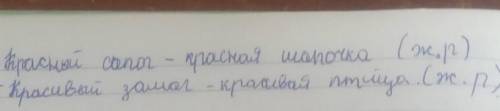 Красный сапог - красная шапочка (ж.р)
Красивый замог - красивая птица. (ж.р)